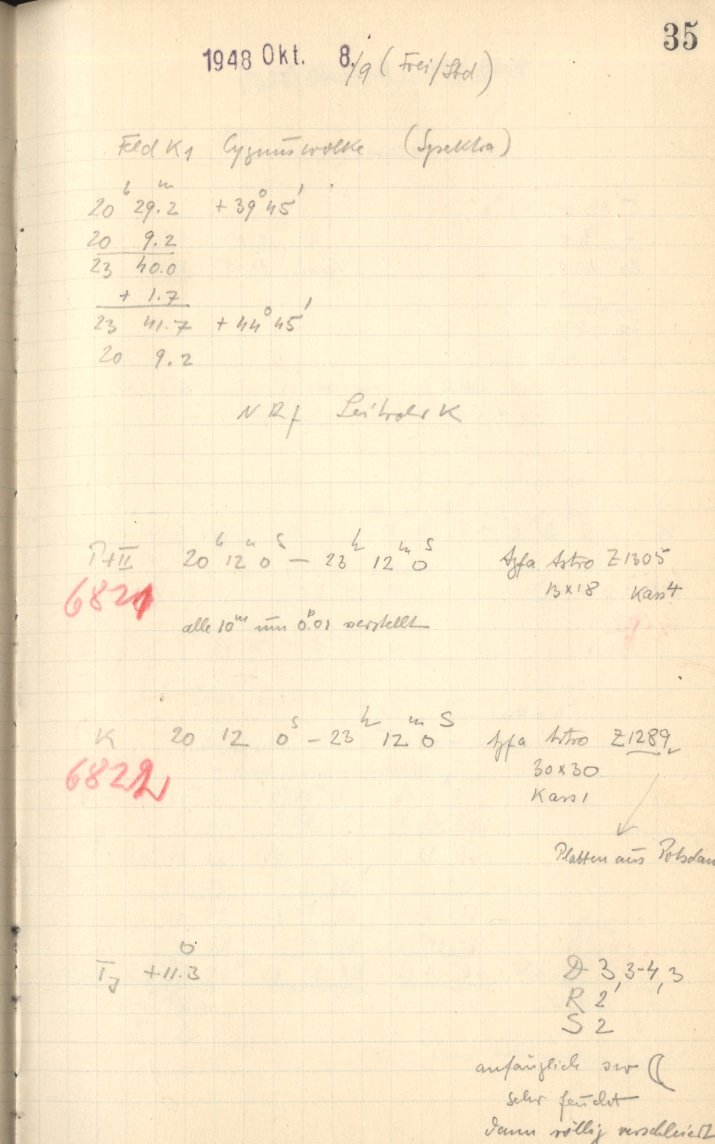 35
1948 Okt. 8./9 (Frei/Sbd)
Feld K1 Cygnuswolke (Spektra)
20 h 29.2 m +39° 45'
20 9.2
23 40.0
+ 1.7
23 41.7 +44° 45'
20 9.2
Leitrohr K
20 h 12 m 0 s – 23 h 12 m 0 s Agfa Astro Z1305
6821 13x18 Kass 4
alle 10 m um 0.01 verstellt
K 20 12 0 s – 23 h 12 m 0 s Agfa Astro Z1289
6822 30x30
Kass 1
Platten aus Potsdam
+11.3°
D 3,3-4,3
R 2
S 2
anfänglich
sehr feucht
dann völlig verschleiert